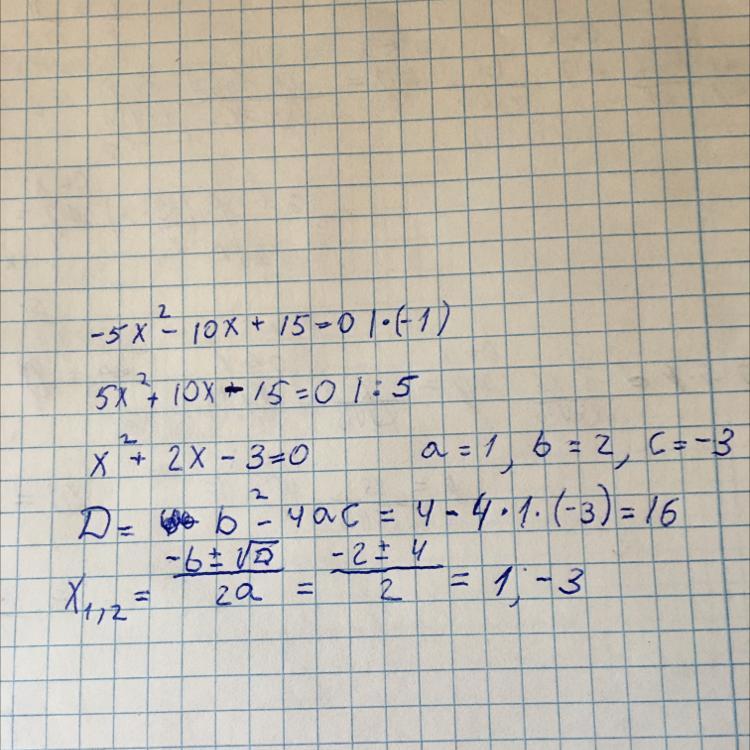 -5x² - 10x + 15 = 0 | · (-1)
5x² + 10x - 15 = 0 | : 5
x² + 2x - 3 = 0 a = 1, b = 2, c = -3
D = b² - 4ac = 4 - 4 · 1 · (-3) = 16
x₁,₂ = (-b ± √D)/(2a) = (-2 ± 4)/2 = 1; -3